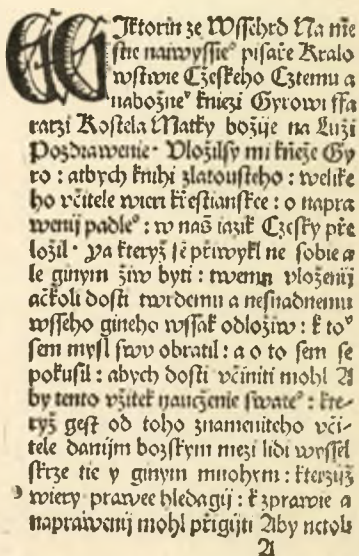 Iktorin ze Wssehrd Na mie
stie naiwyssieᵒ pisaře Kralo
wstwie Cżeskeho Cztemu a
nabožneᵒ knieži Gyrowi ffa
rarzi Kostela Matky božije na Luži
Pozdrawenie· Vložilsy mi knieže Gy
ro : atbych knihi zlatousteho : welike
ho včitele wieri křestianskee : o napra
wenij padleᵒ : w naß iazik Czesky pře
ložil· ya kteryž sě přiwykl ne sobie a
le ginym žiw byti : twemu vloženij
ačkoli dosti twrdemu a nesnadnemu
wsseho gineho wssak odložiw : k toᵒ
sem mysl swu obratil : a o to sem se
pokusil : abych dosti včiniti mohl A
by tento vžitek nauczenie swateᵒ : kte-
ryž gest od toho znameniteho vči-
tele danijm bozskym mezi lidi wyssel
skrze tie y ginym mnohym : kterziž
wiery prawee hledagij : k zprawie a
naprawenij mohl přigijti Aby netoli
A